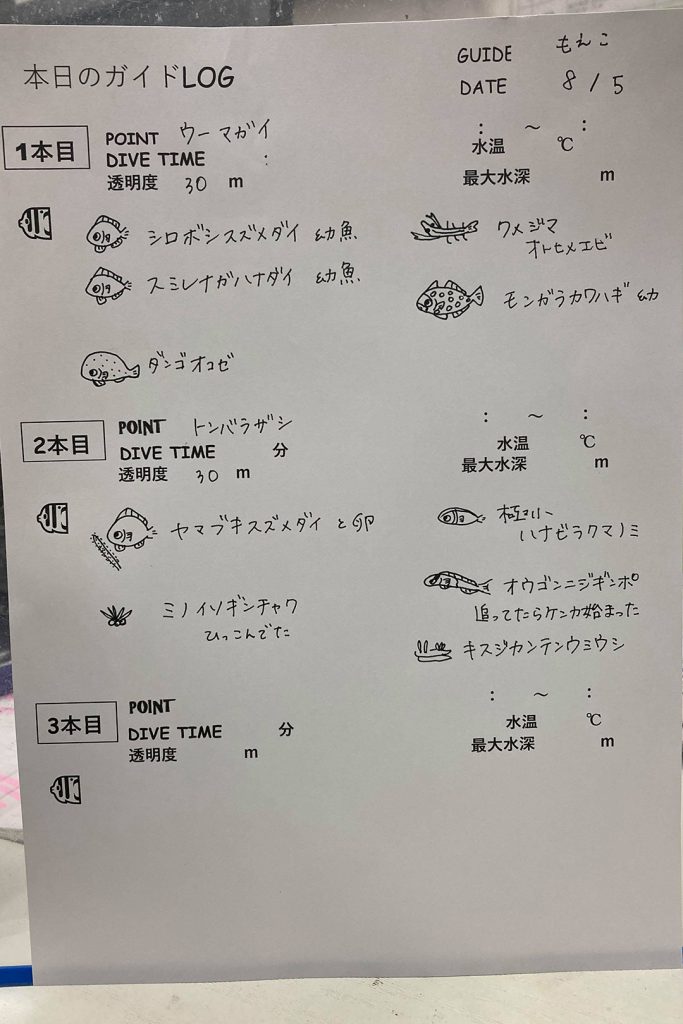 本日のガイドLOG
GUIDE もえこ
DATE 8/5
1本目
POINT ウーマガイ
DIVE TIME :
透明度 30 m
: ～ :
水温 ℃
最大水深 m
シロボシスズメダイ 幼魚
スミレナガハナダイ 幼魚
ダンゴオコゼ
クメジマ
オトヒメエビ
モンガラカワハギ 幼
2本目
POINT トンバラザシ
DIVE TIME 分
透明度 30 m
: ～ :
水温 ℃
最大水深 m
ヤマブキスズメダイ と卵
ミノイソギンチャク
ひっこんでた
極小
ハナビラクマノミ
オウゴンニジギンポ
追ってたらケンカ始まった
キスジカンテンウミウシ
3本目
POINT
DIVE TIME 分
透明度 m
: ～ :
水温 ℃
最大水深 m